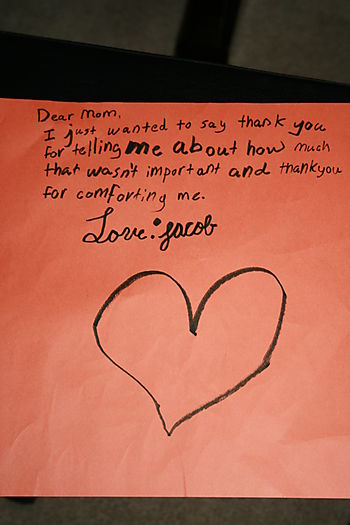 Dear Mom,
I just wanted to say thank you
for telling me about how much
that wasn't important and thankyou
for comforting me.
Love: Jacob